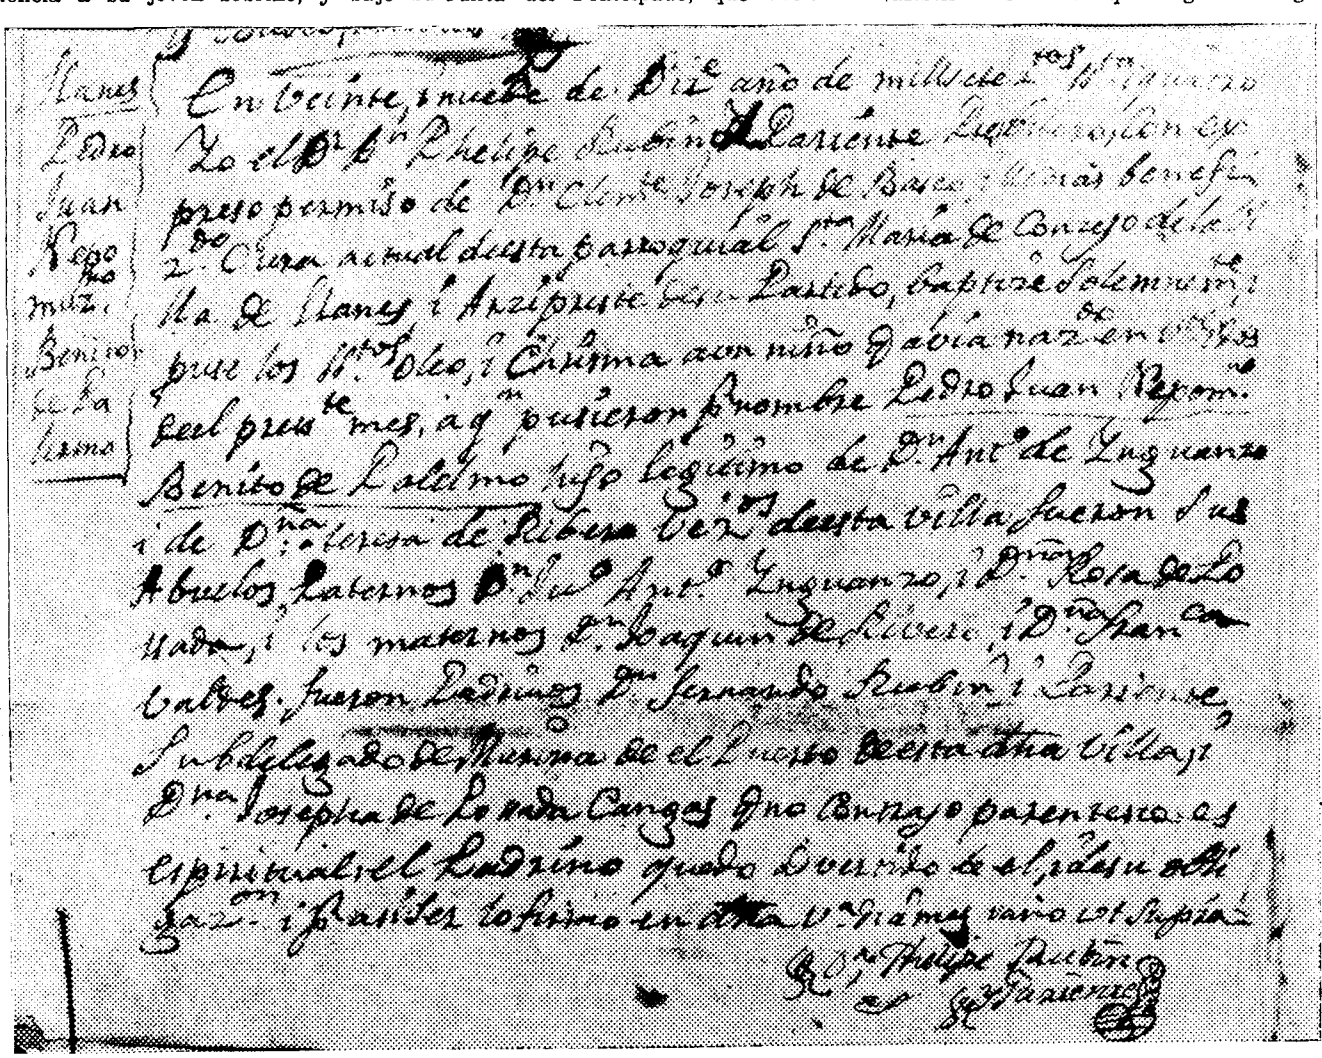 Llanes
Pedro
Juan
Nepo
muz.no
Benito
de Pa
lermo
En veinte, i nueve de Diz.e año de mill sete z.tos
Yo el D.r D.n Phelipe Rubin Pariente Presvitero, con ex
preso permiso de D.n Clem.te Joseph de Basco benefi
z.do Cura actual de esta parroquial S.ta Maria de Conzejo de la Vi
lla de Llanes i Arzipreste de su Partido, baptize solemnem.te, i
puse los S.tos oleo, i Chrisma a un niño q avia naz.do en
de el pres.te mes, a q.n pusieron p.r nombre Pedro Juan Nepom.no
Benito de Palermo hijo legitimo de D.n Ant.o de Ynguanzo
i de D.na teresa de Ribero vez.os de esta villa fueron sus
Abuelos Paternos D.n Ju.o Ant.o Ynguanzo, i D.ña Rosa de Po
sada, i los maternos D.n Joaquin de Rivero i D.ña Fran.ca
Valdes. fueron Padrinos D.n fernando Rubin i Pariente,
Subdelegado de Marina de el Puerto de esta dha villa, i
D.na Josepha de Posada Cangas q no contrajo parentesco
espiritual, i el Padrino quedo advertido de el, i de su obli
gaz.on i p.a q conste lo firmo en dha v.a dia mes i año ut supra
D.r Phelipe Rubin
y Pariente